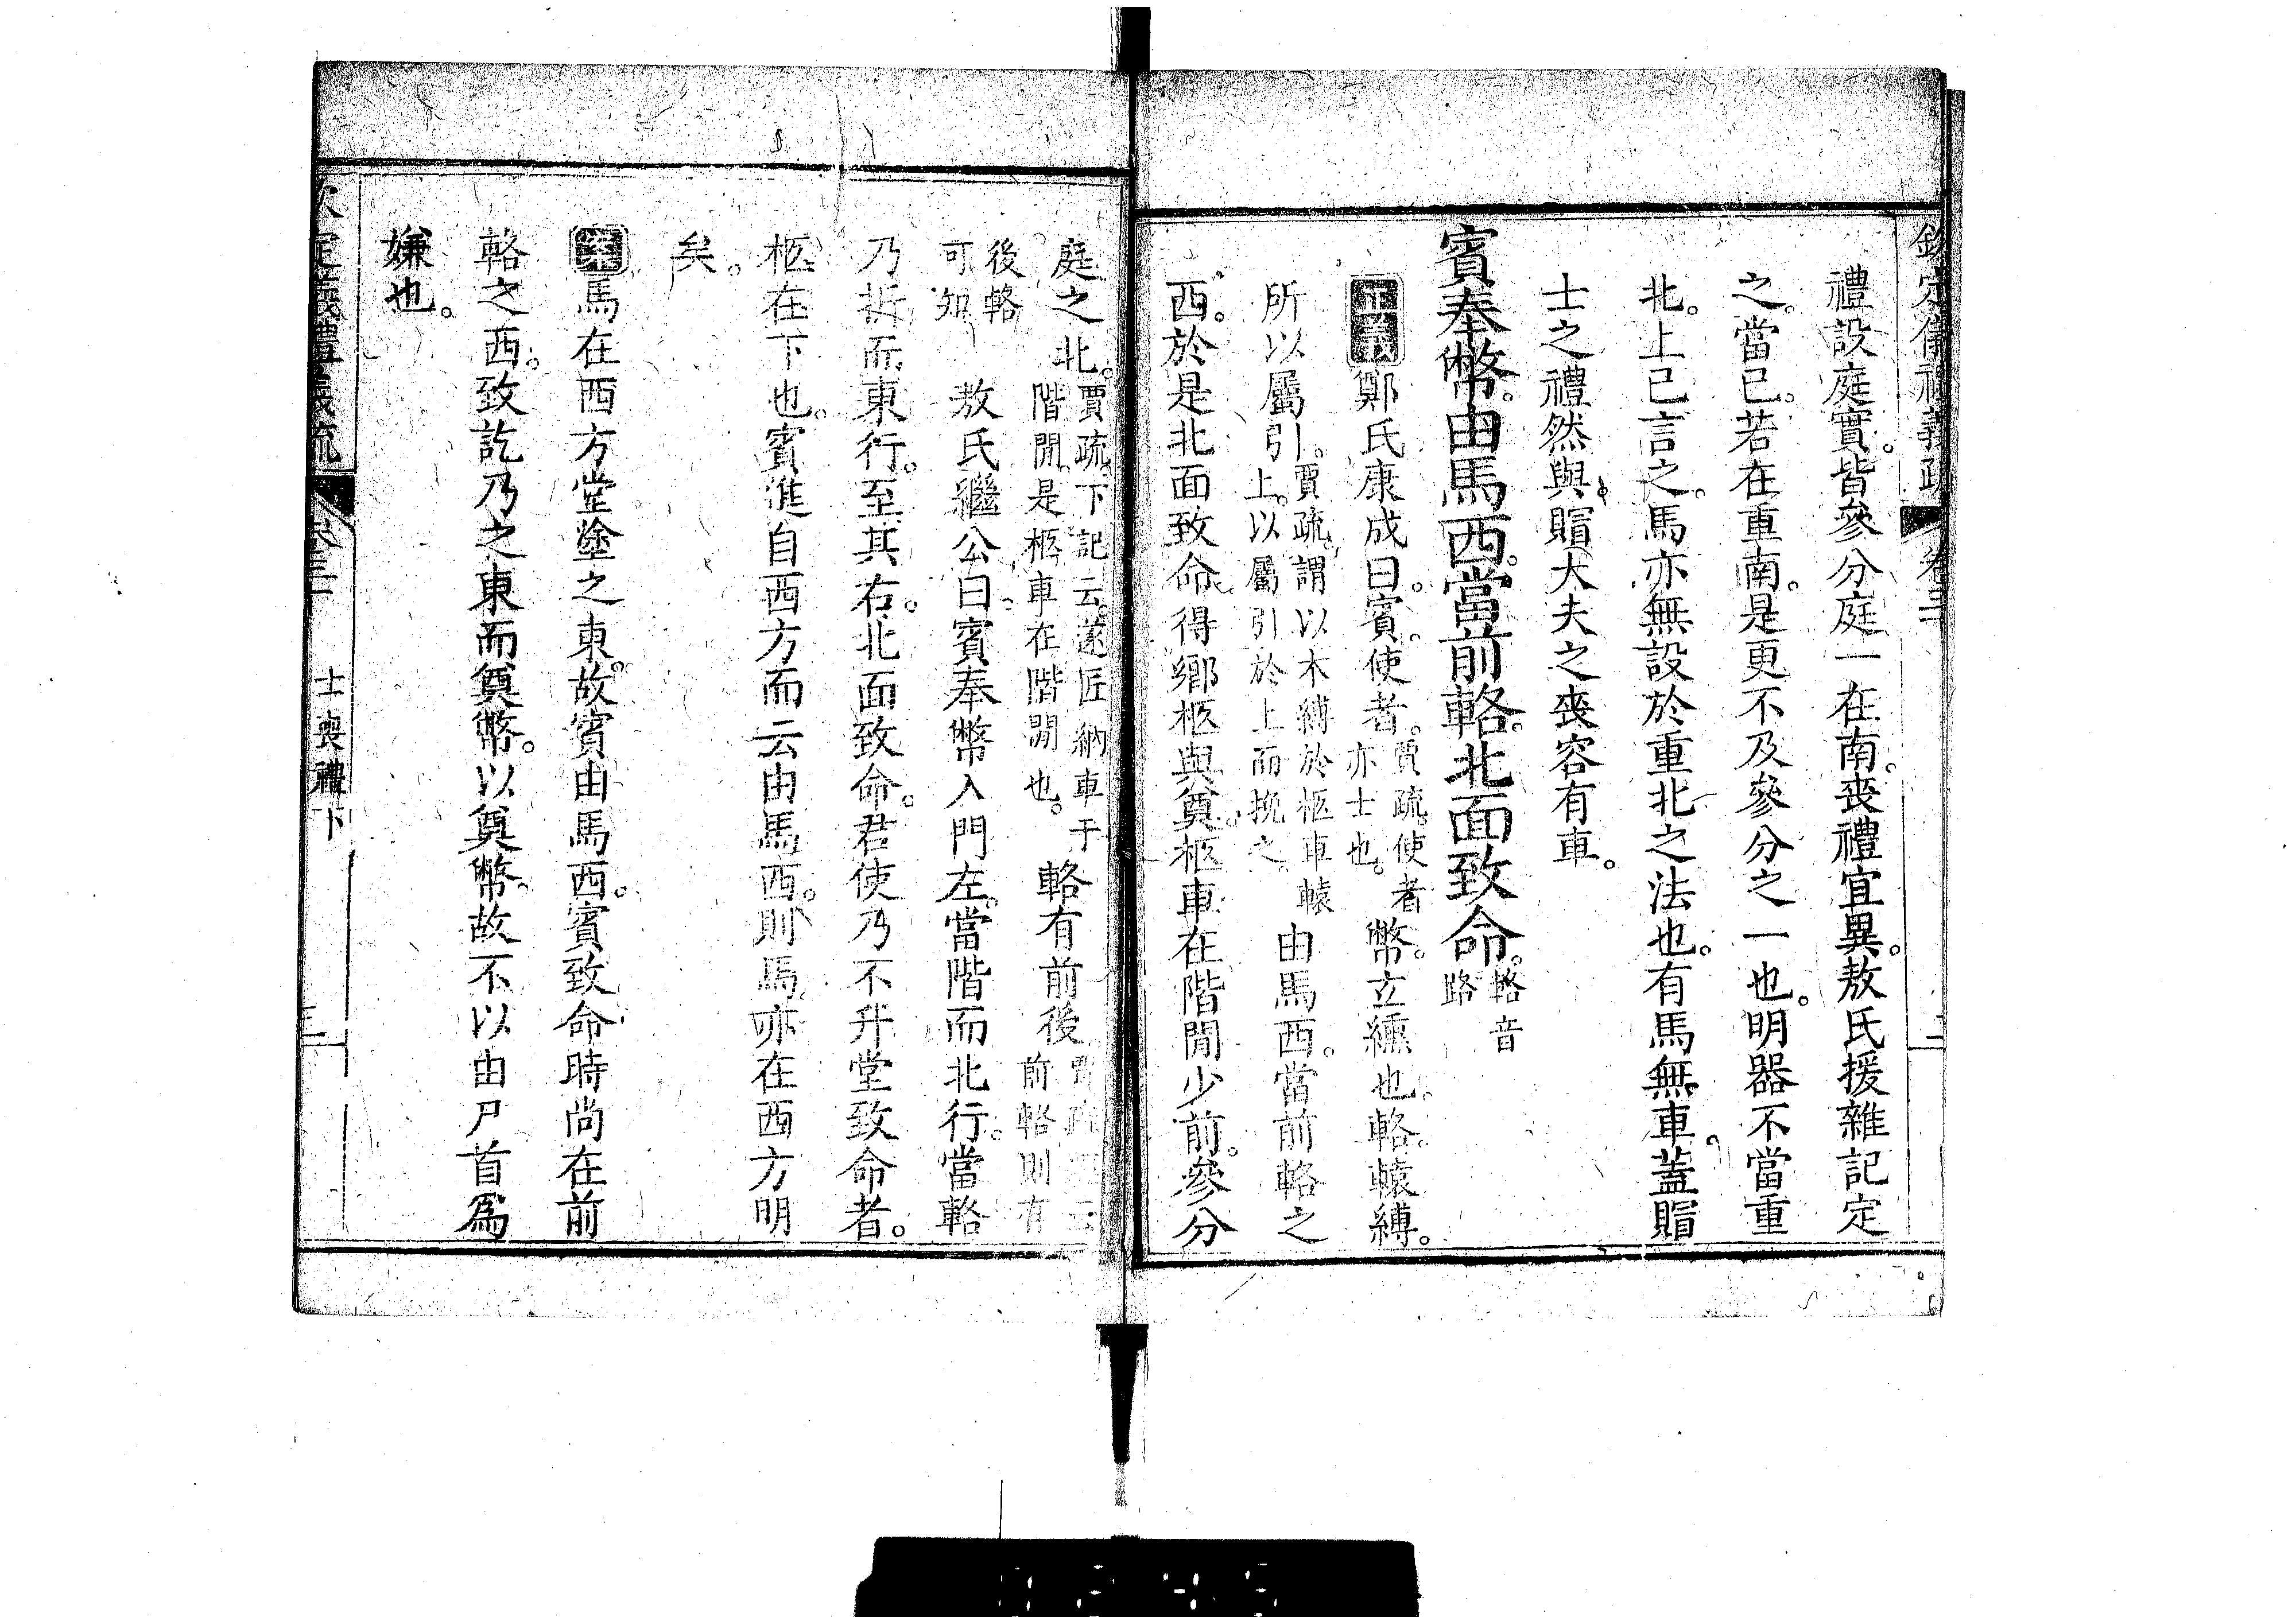 欽定儀禮義疏　卷三
禮設庭實。皆參分庭一在南。喪禮宜異。敖氏援雜記定
之。當已。若在重南。是更不及參分之一也。明器不當重
北。上已言之。馬亦無設於重北之法也。有馬無車。蓋賵
士之禮然與。賵大夫之喪容有車。
賓奉幣。由馬西。當前輅。北面致命。輅音
路
正義鄭氏康成曰。賓。使者。賈疏。使者
亦士也。幣。玄纁也。輅。轅縛。
所以屬引。賈疏。謂以木縛於柩車轅
上。以屬引於上而挽之。由馬西。當前輅之
西。於是北面致命。得鄉柩與奠。柩車在階閒少前。參分
庭之北。賈疏。下記云。遂匠納車于
階閒。是柩車在階閒也。輅有前後。
前輅則有
後輅
可知
敖氏繼公曰。賓奉幣入門左。當階而北行。當輅
乃折而東行。至其右。北面致命。君使乃不升堂致命者。
柩在下也。賓進自西方而云由馬西。則馬亦在西方明
矣。
案馬在西方堂塗之東。故賓由馬西。賓致命時尚在前
輅之西。致訖乃之東而奠幣。以奠幣。故不以由尸首爲
嫌也。
欽定儀禮義疏　卷三　士喪禮下　三